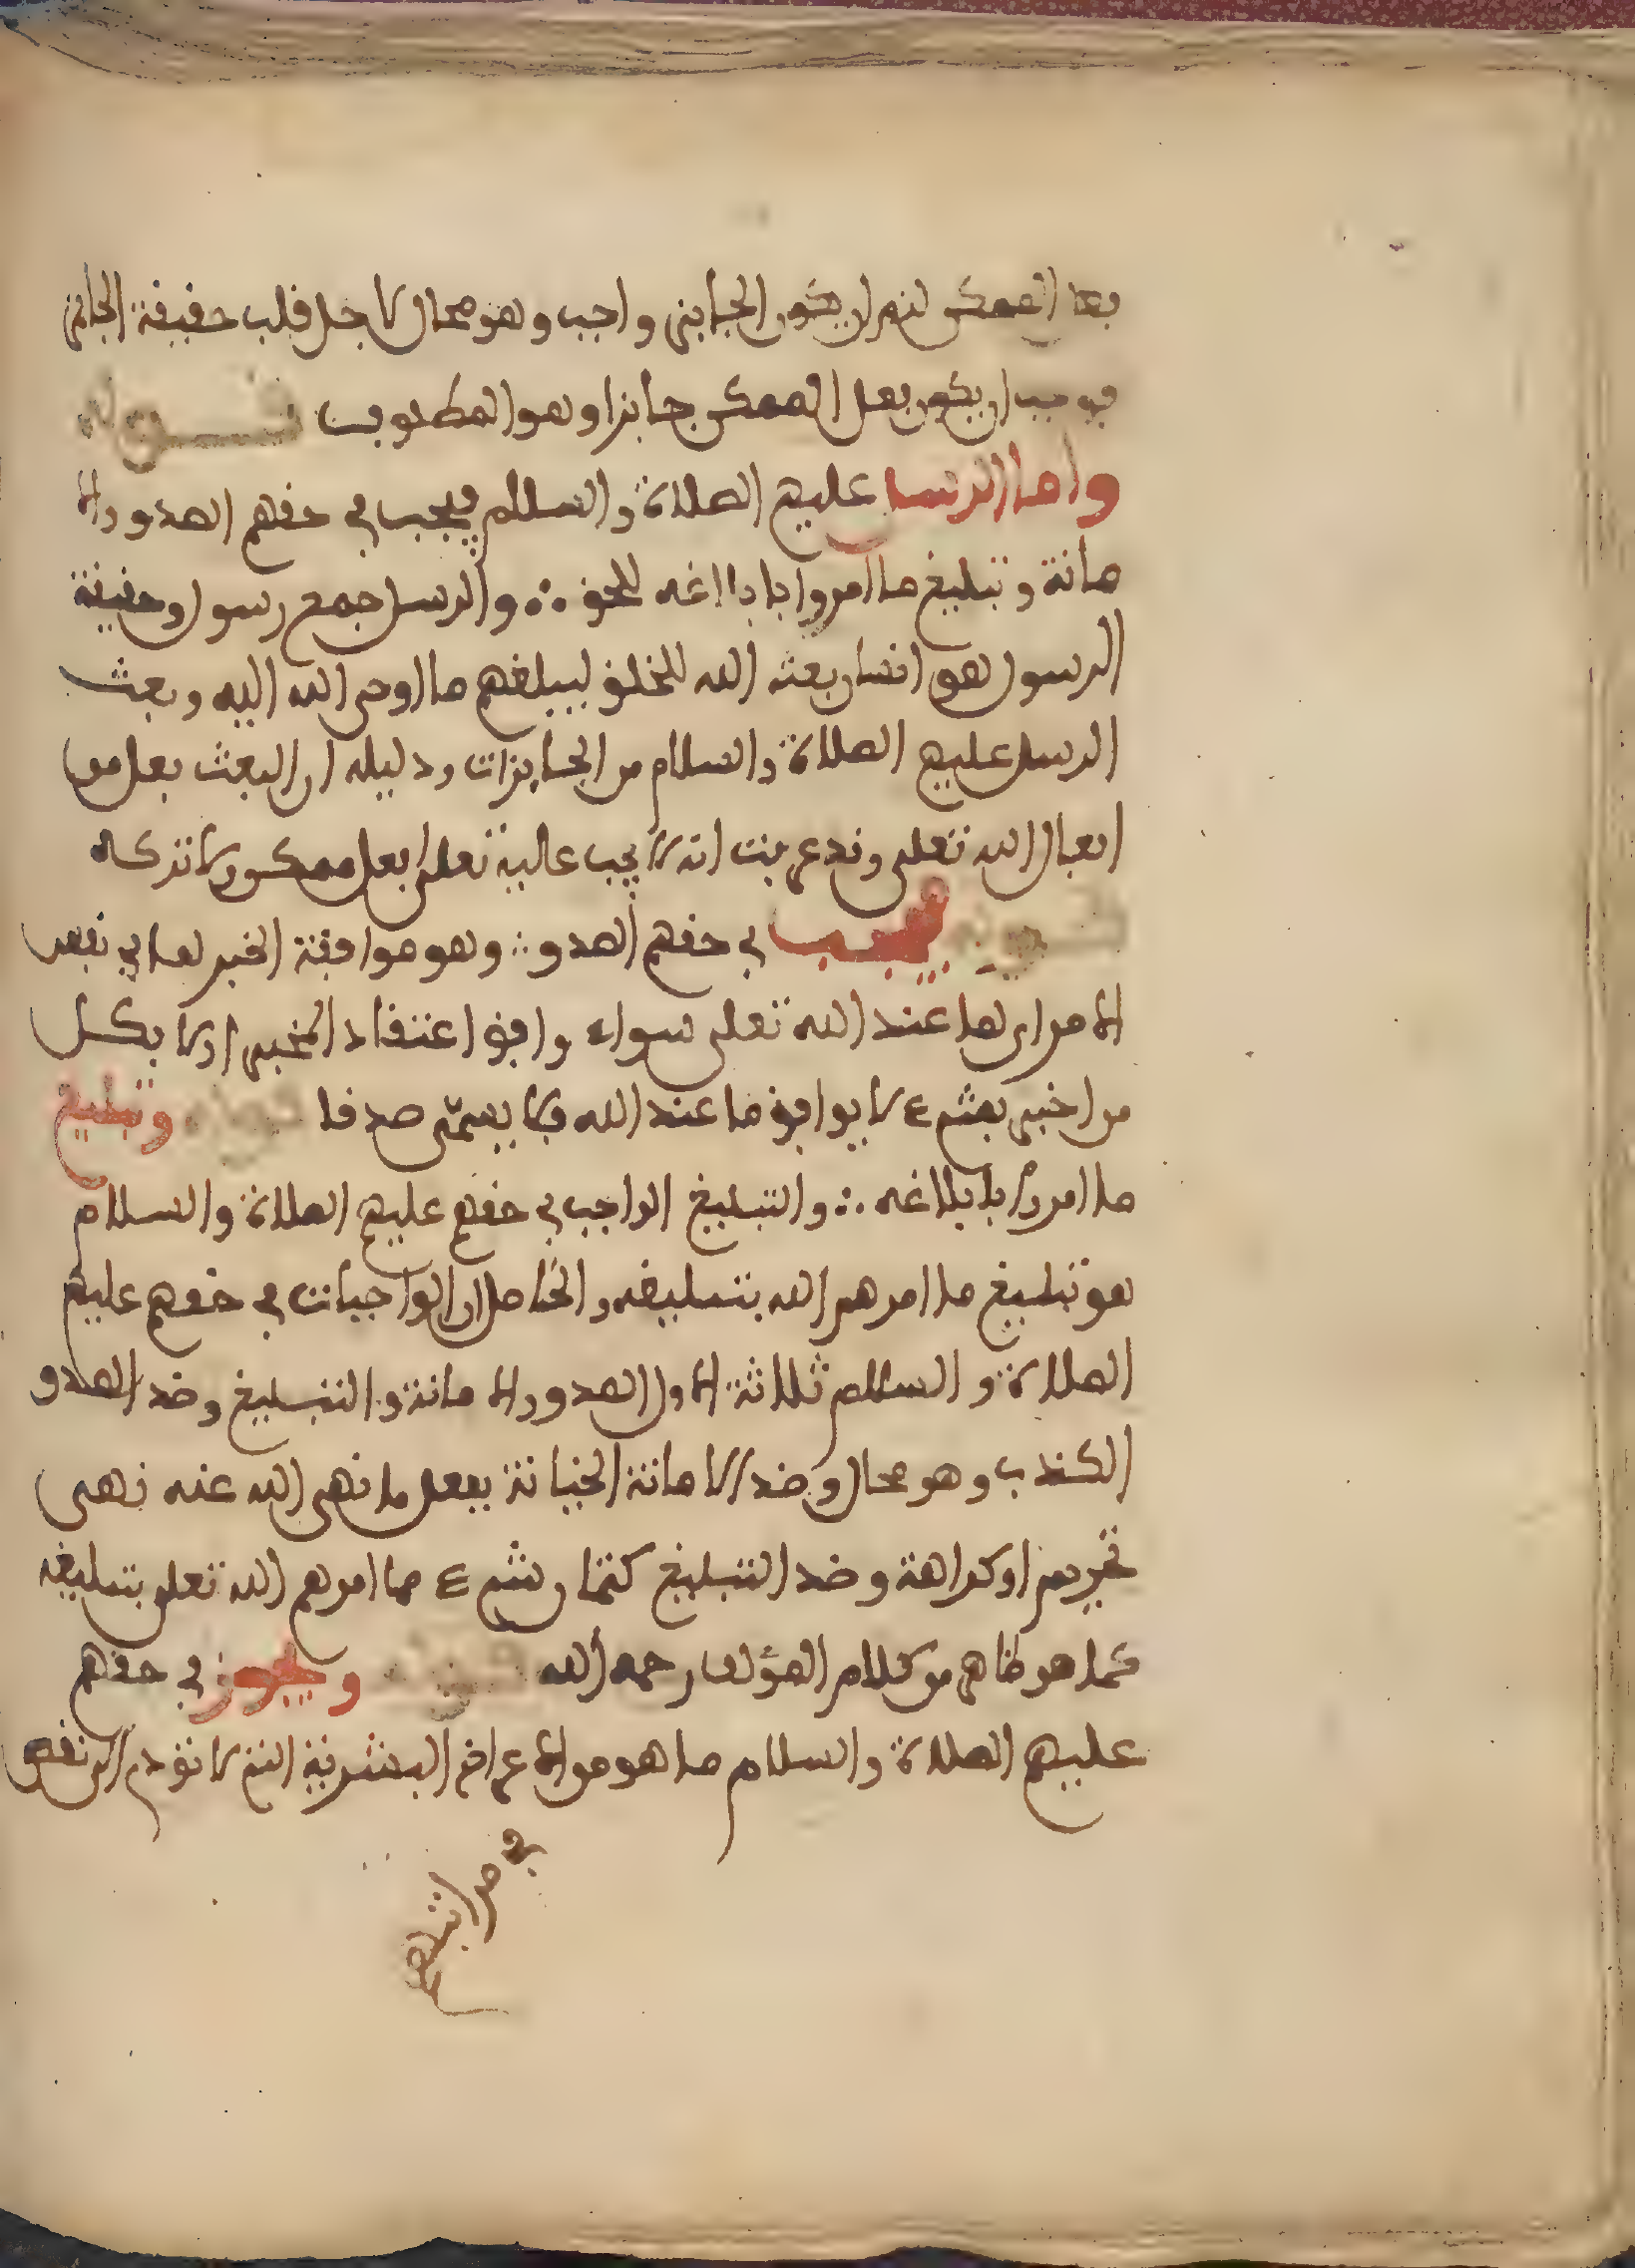 فعل الممكن لزم ان يكون الجايز واجب وهو محال لاجل قلب حقيقة الجايز
فوجب ان يكون فعل الممكن جايزا وهو المطلوب قوله
واما الرسل عليهم الصلاة والسلام فيجب في حقهم الصدق والا
مانة وتبليغ ما امروا بابلاغه للخلق ∴ والرسل جمع رسول وحقيقة
الرسول هو انسان بعثه الله للخلق ليبلغهم ما اوحى الله اليه وبعث
الرسل عليهم الصلاة والسلام من الجايزات ودليله ان البعث فعل من
افعال الله تعلى وقد عرفت انه لا يجب عليه تعلى فعل ممكن ولا تركه
قوله فيجب في حقهم الصدق ∴ وهو موافقة الخبر لما في نفس
الامر اي لما عند الله تعلى سواء وافق اعتقاد المخبر ام لا فكل
من اخبر بشيء لا يوافق ما عند الله فلا يسمى صدقا قوله وتبليغ
ما امروا بابلاغه ∴ والتبليغ الواجب في حقهم عليهم الصلاة والسلام
هو تبليغ ما امرهم الله بتبليغه والحاصل ان الواجبات في حقهم عليهم
الصلاة والسلام ثلاثة الاول الصدق والامانة والتبليغ وضد الصدق
الكذب وهو محال وضد الامانة الخيانة بفعل ما نهى الله عنه نهي
تحريم او كراهة وضد التبليغ كتمان شيء مما امرهم الله تعلى بتبليغه
كما هو ظاهر من كلام المؤلف رحمه الله قوله ويجوز في حقهم
عليهم الصلاة والسلام ما هو من الاعراض البشرية التي لا تؤدي الى نقص
في مراتبهم